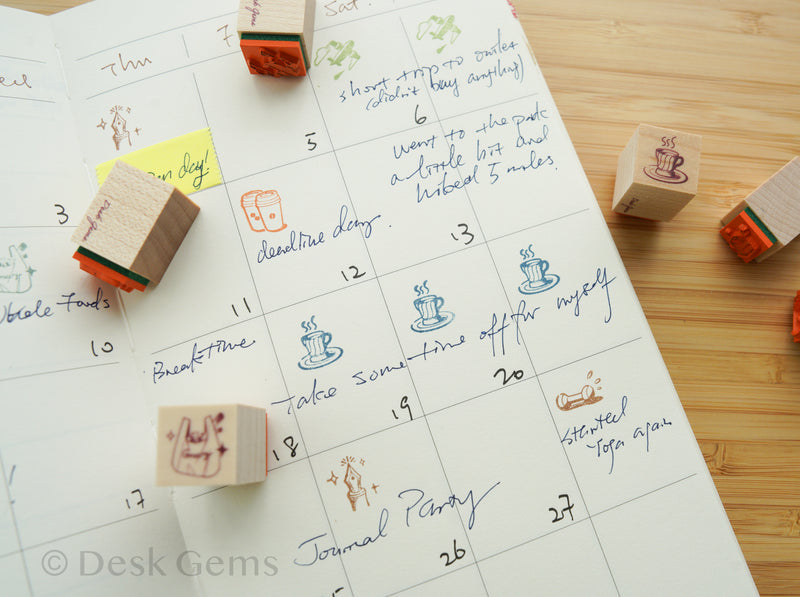 Thu
Sat.
short trip to outlet
(didn't buy anything)
day!
3
5
6
went to the park
a little bit and
hiked 5 miles.
deadline day.
Foods
10
11
12
13
Break-time
Take some time off for myself
17
18
19
20
started
Yoga again
Journal Party
26
27
© Desk Gems